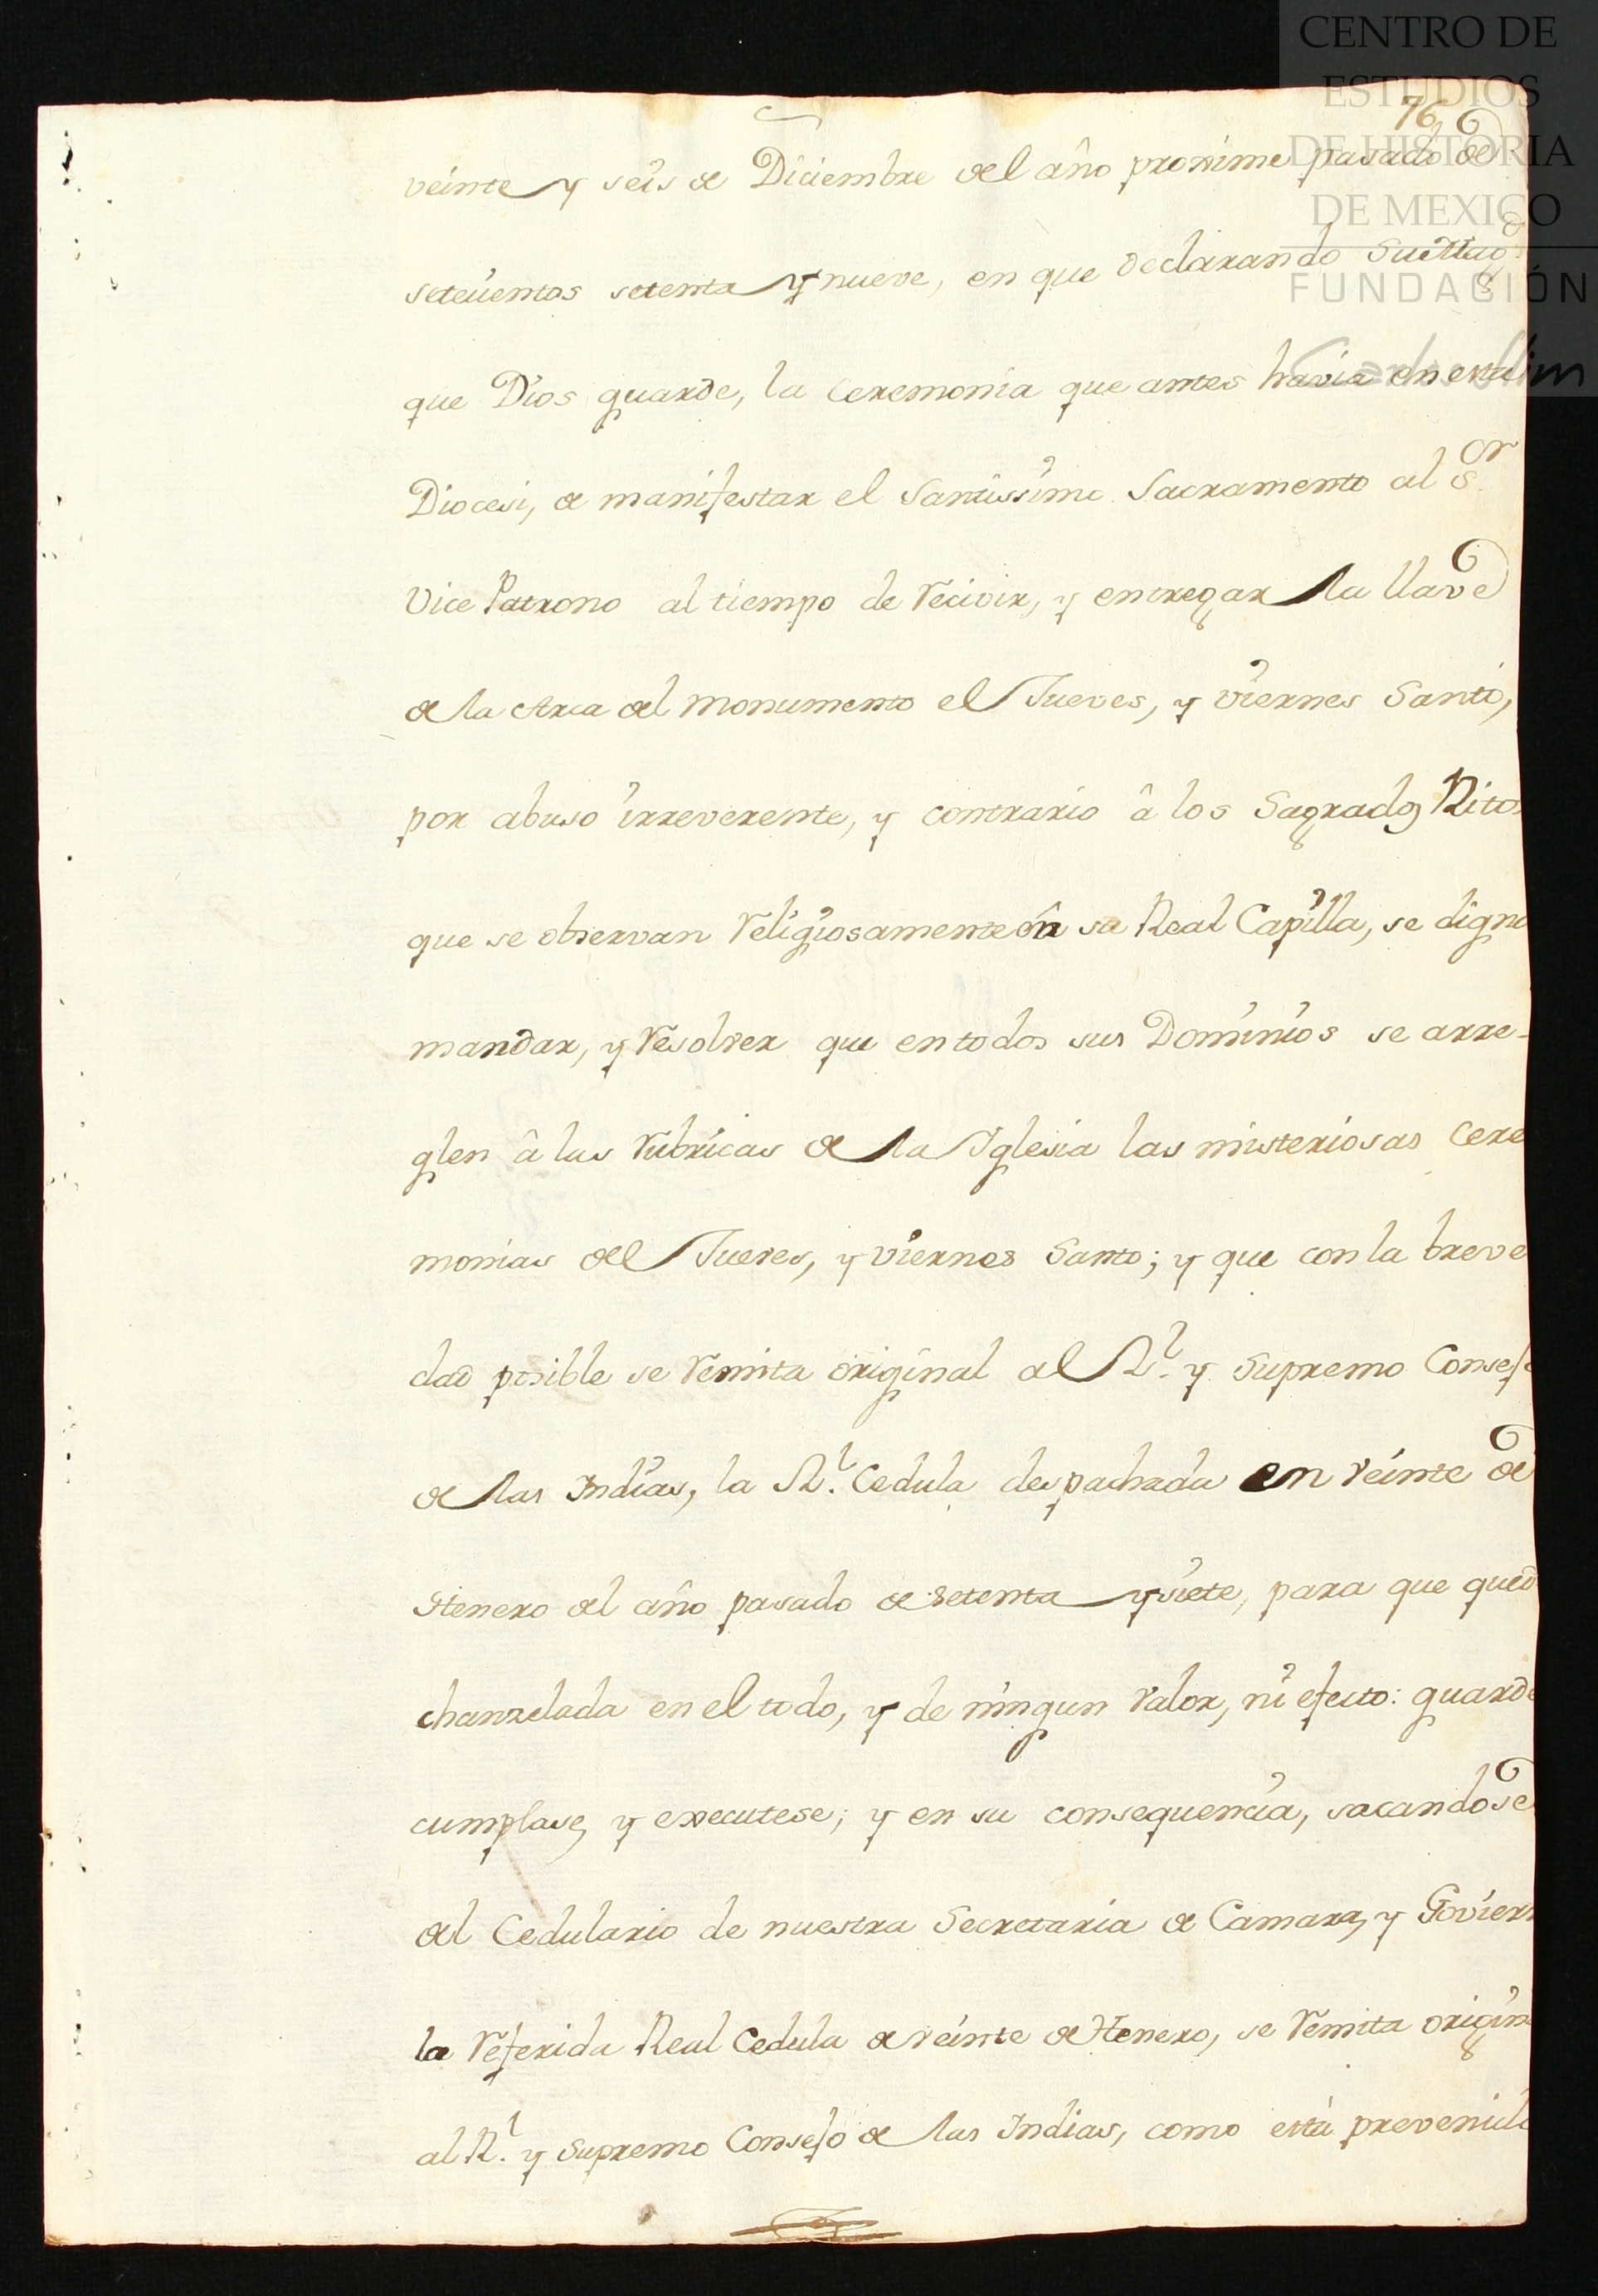 CENTRO DE
ESTUDIOS
DE HISTORIA
DE MEXICO
FUNDACIÓN
Carlos Slim
76
veinte y seis de Diciembre del año proximo pasado de
setecientos setenta y nueve, en que declarando Su Mag.
que Dios guarde, la ceremonia que antes havia en esta
Diocesi, de manifestar el Santissimo Sacramento al Sr.
Vice Patrono al tiempo de recivir, y entregar la llave
de la Arca del Monumento el Jueves, y Viernes Santo,
por abuso irreverente, y contrario â los Sagrados Ritos
que se observan religiosamente en su Real Capilla, se digno
mandar, y resolver que en todos sus Dominios se arre-
glen â las rubricas de la Iglesia las misteriosas cere
monias del Jueves, y Viernes Santo; y que con la breve
dad posible se remita original al Rl. y Supremo Consejo
de las Indias, la Rl. Cedula despachada en veinte de
Henero del año pasado de setenta y siete, para que qued
chanzelada en el todo, y de ningun valor, ni efecto: guarde
cumplase, y executese; y en su consequencia, sacandose
del Cedulario de nuestra Secretaria de Camara, y Goviern
la referida Real Cedula de veinte de Henero, se remita origin
al Rl. y Supremo Consejo de las Indias, como está prevenido